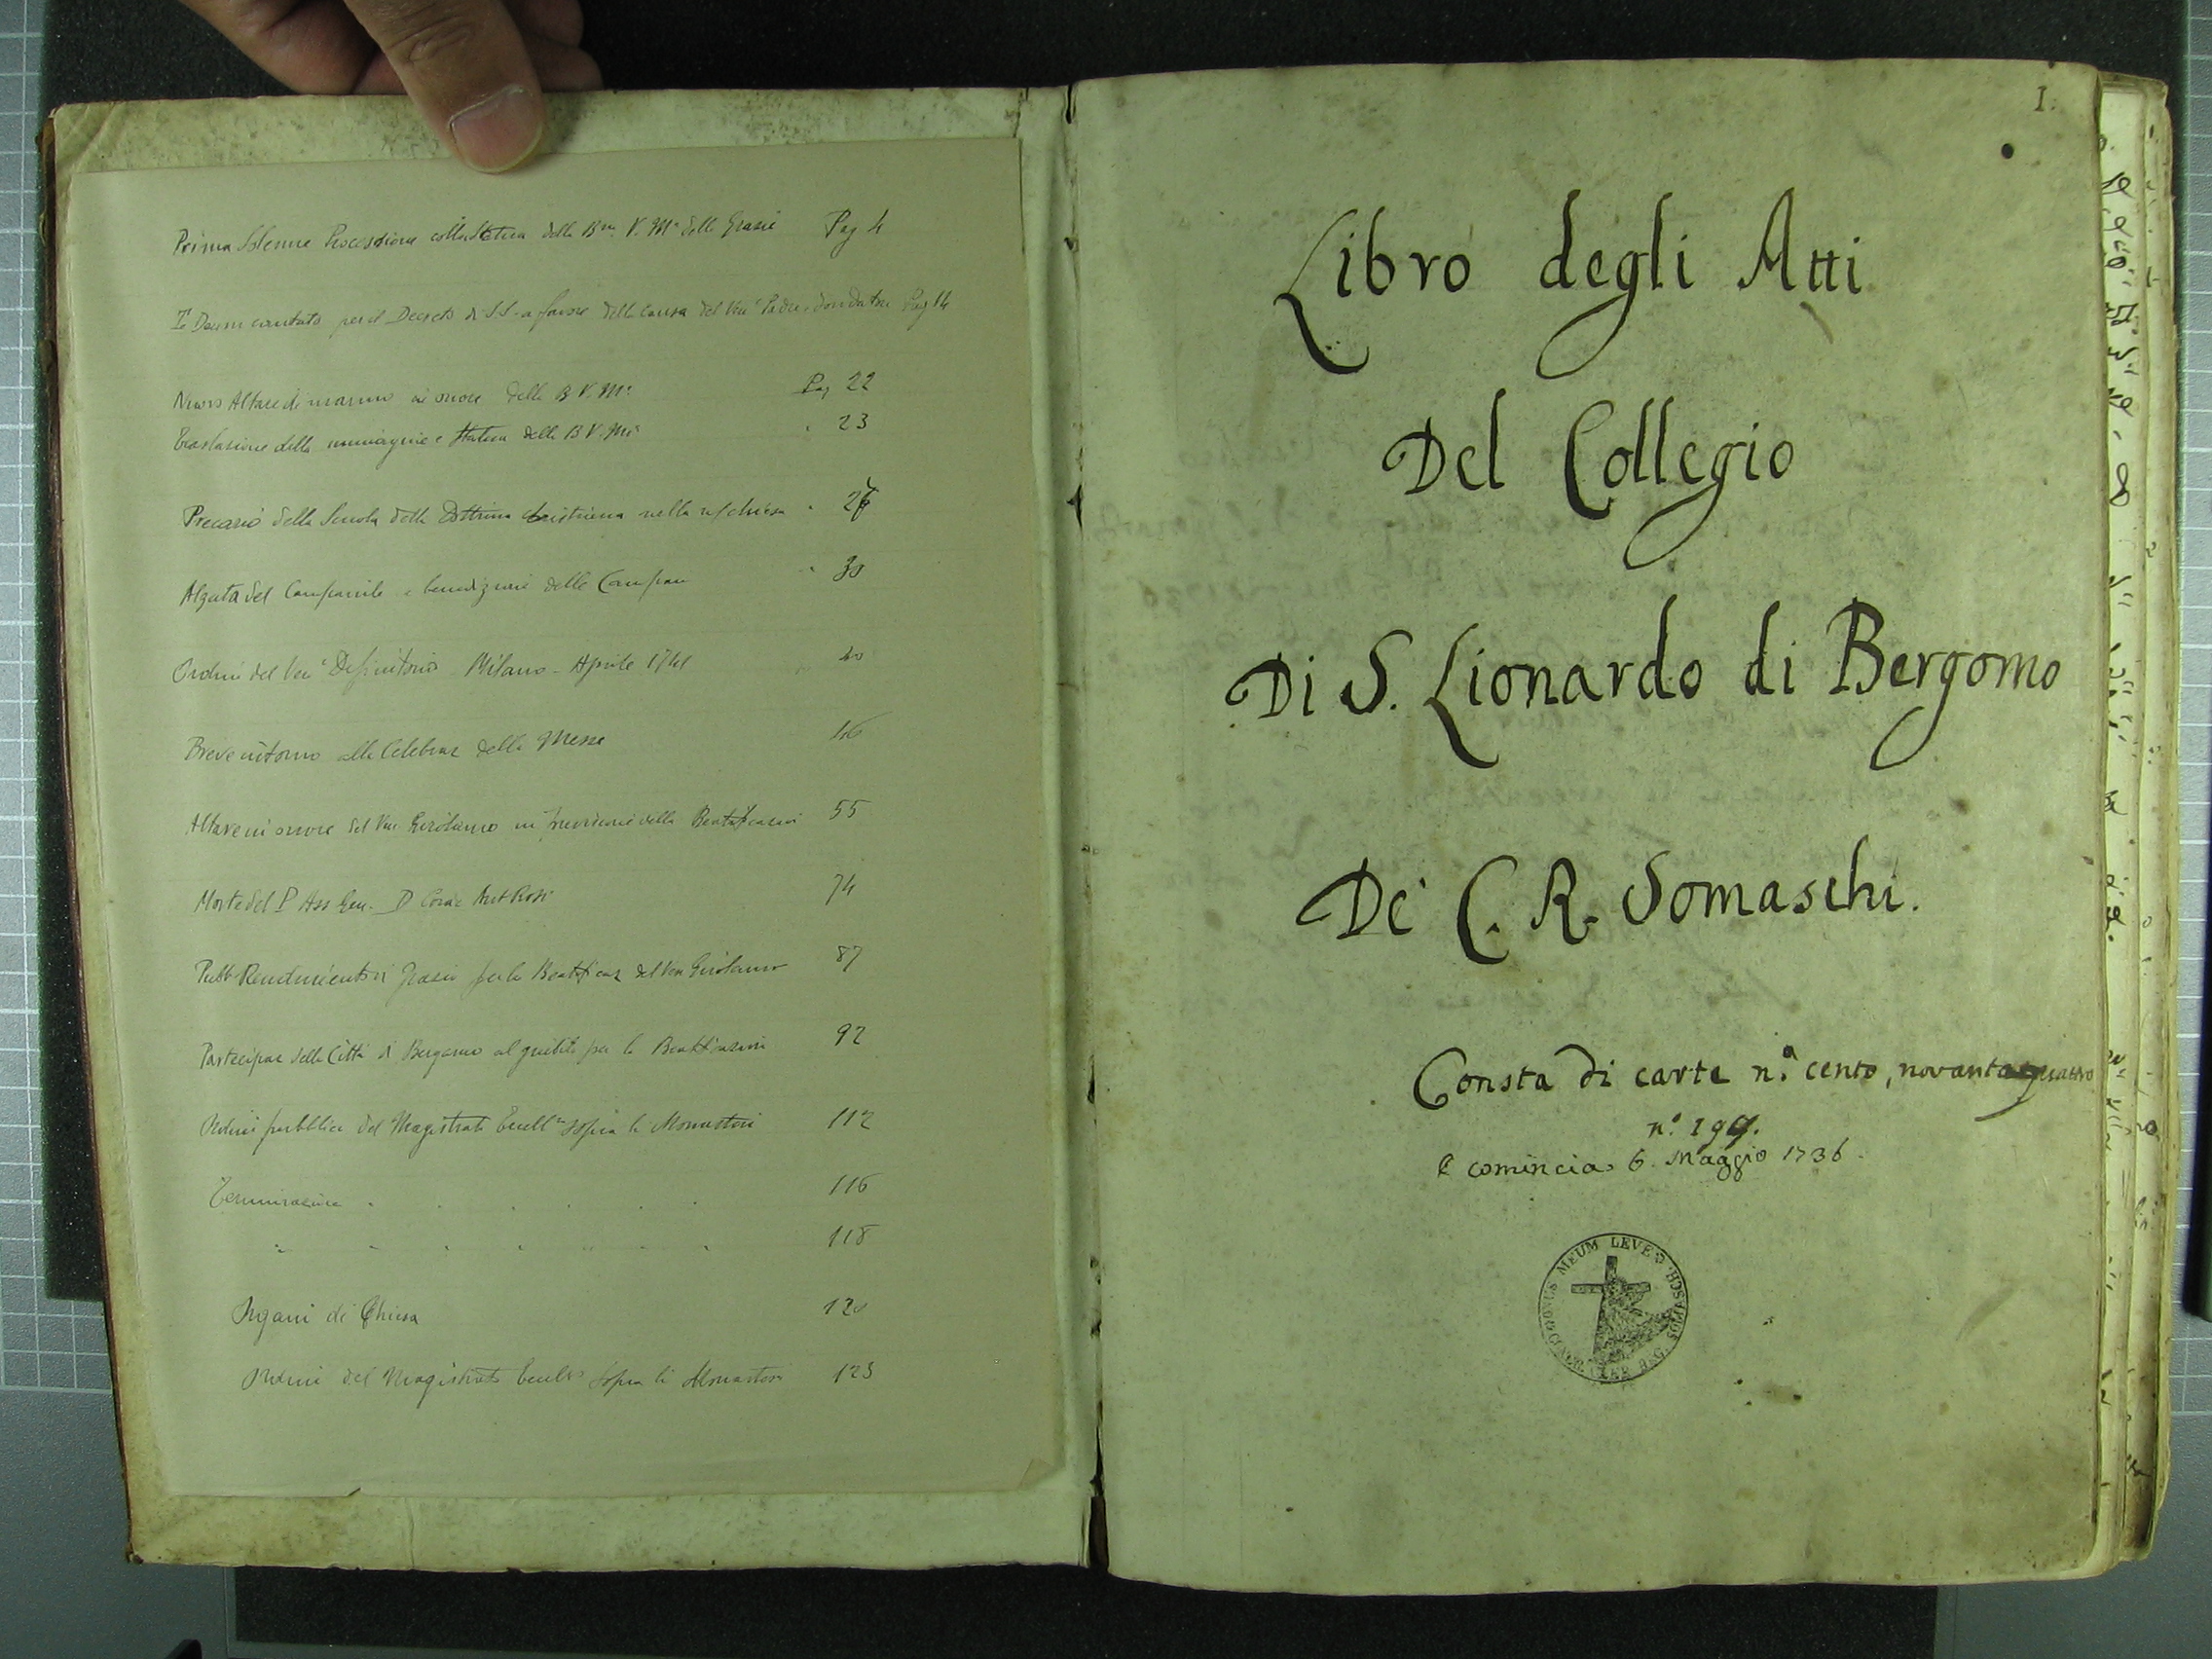 Prima Solenne Processione colla Statua della B.ma V. M.a delle Grazie Pag 4
Te Deum cantato per il Decreto di S.S. a favore della Causa del Ven.e Padre Fondatore Pag 14
Nuovo Altare di marmo in onore della B V. M.a Pag 22
Traslazione della immagine e Statua della B V. M.a " 23
Precario della Scuola della Dottrina Cristiana nella ns/ chiesa "
Alzata del Campanile e benedizione delle Campane " 30
Ordini del Ven.e Definitorio - Milano - Aprile 1741 " 40
Breve intorno alla Celebraz della Messa 46
Altare in onore del Ven. Girolamo in previsione della Beatificazione 55
Morte del P Ass Gen. D Ant Rossi 74
Pubb Rendimento di Grazie per la Beatificaz del Ven Girolamo 87
Partecipaz della Città di Bergamo al giubilo per la Beatificazione 92
Ordini pubblici del Magistrato Eccell.mo sopra li Monasteri 112
Terminazione " 116
" 118
Organi di Chiesa 120
Ordini del Magistrato Eccell.mo sopra li Monasteri 123
I.
Libro degli Atti
Del Collegio
Di S. Lionardo di Bergomo
De' C. R. Somaschi.
Consta di carte n.o cento, novantaquattro
n.o 194.
E comincia 6. Maggio 1736.
ONUS MEUM LEVE
CONGR. CLER. REG. SOMASCH.